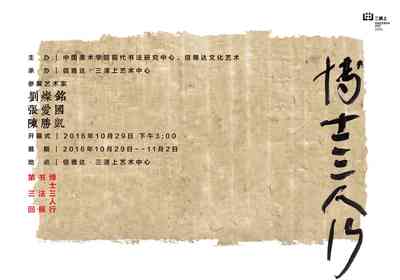 三满上
主 办 | 中国美术学院现代书法研究中心、佰雅达文化艺术
承 办 | 佰雅达·三满上艺术中心
参展艺术家
劉燦銘
張愛國
陳勝凱
开幕式 | 2016年10月29日 下午3:00
展 期 | 2016年10月29日--11月2日
地 点 | 佰雅达·三满上艺术中心
博士三人行
书法展
第三回
博士三人行